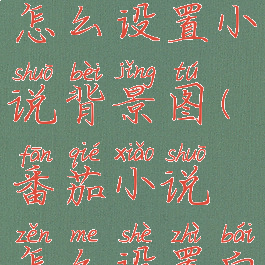 怎么设置小
shuō bèi jǐng tú
说背景图(
fān qié xiǎo shuō
番茄小说
zěn me shè zhì bái
怎么设置白